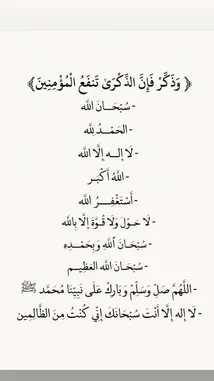 ﴿ وَذَكِّرْ فَإِنَّ الذِّكْرَىٰ تَنفَعُ الْمُؤْمِنِينَ﴾
-سُبْحَــانَ اللَّه
-الحَمْــدُ لِلَّه
-لَا إِلــٰه إِلَّا اللَّه
-اللَّهُ أَكْبَــر
-أَسْتَغْفِــرُ اللَّه
-لَا حَـوْلَ وَلَا قُـوَّةَ إِلَّا بِاللَّه
-سُبْحَانَ اللَّهِ وَبِحَمْـدِه
-سُبْحَانَ اللَّه العَظِيـم
-اللَّهُمَّ صَلِّ وَسَلِّمْ وَبَارِكْ عَلَى نَبِيِّنَا مُحَمَّد ﷺ
-لَا إله إِلَّا أَنْتَ سُبْحَانَكَ إِنِّي كُنْتُ مِنَ الظَّالِمِين